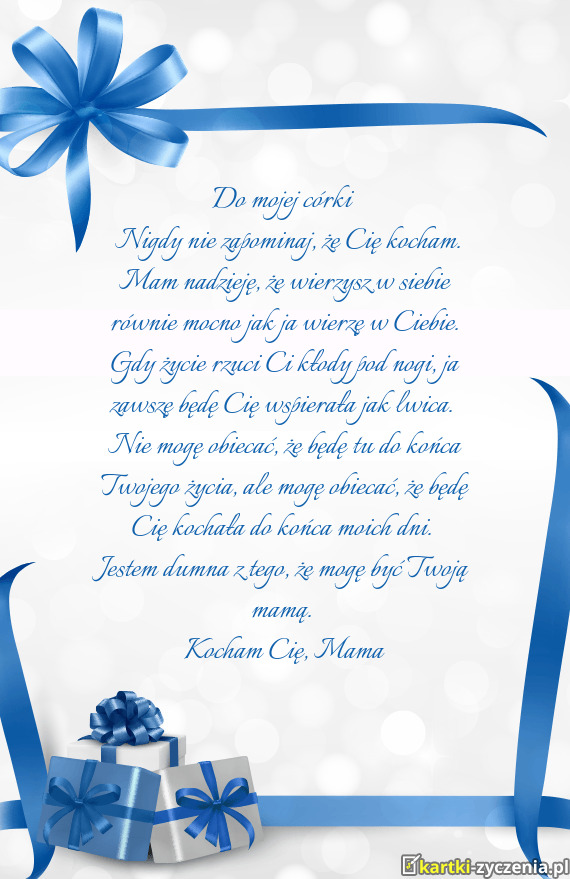 Do mojej córki
Nigdy nie zapominaj, że Cię kocham.
Mam nadzieję, że wierzysz w siebie
równie mocno jak ja wierzę w Ciebie.
Gdy życie rzuci Ci kłody pod nogi, ja
zawszę będę Cię wspierała jak lwica.
Nie mogę obiecać, że będę tu do końca
Twojego życia, ale mogę obiecać, że będę
Cię kochała do końca moich dni.
Jestem dumna z tego, że mogę być Twoją
mamą.
Kocham Cię, Mama
kartki-zyczenia.pl